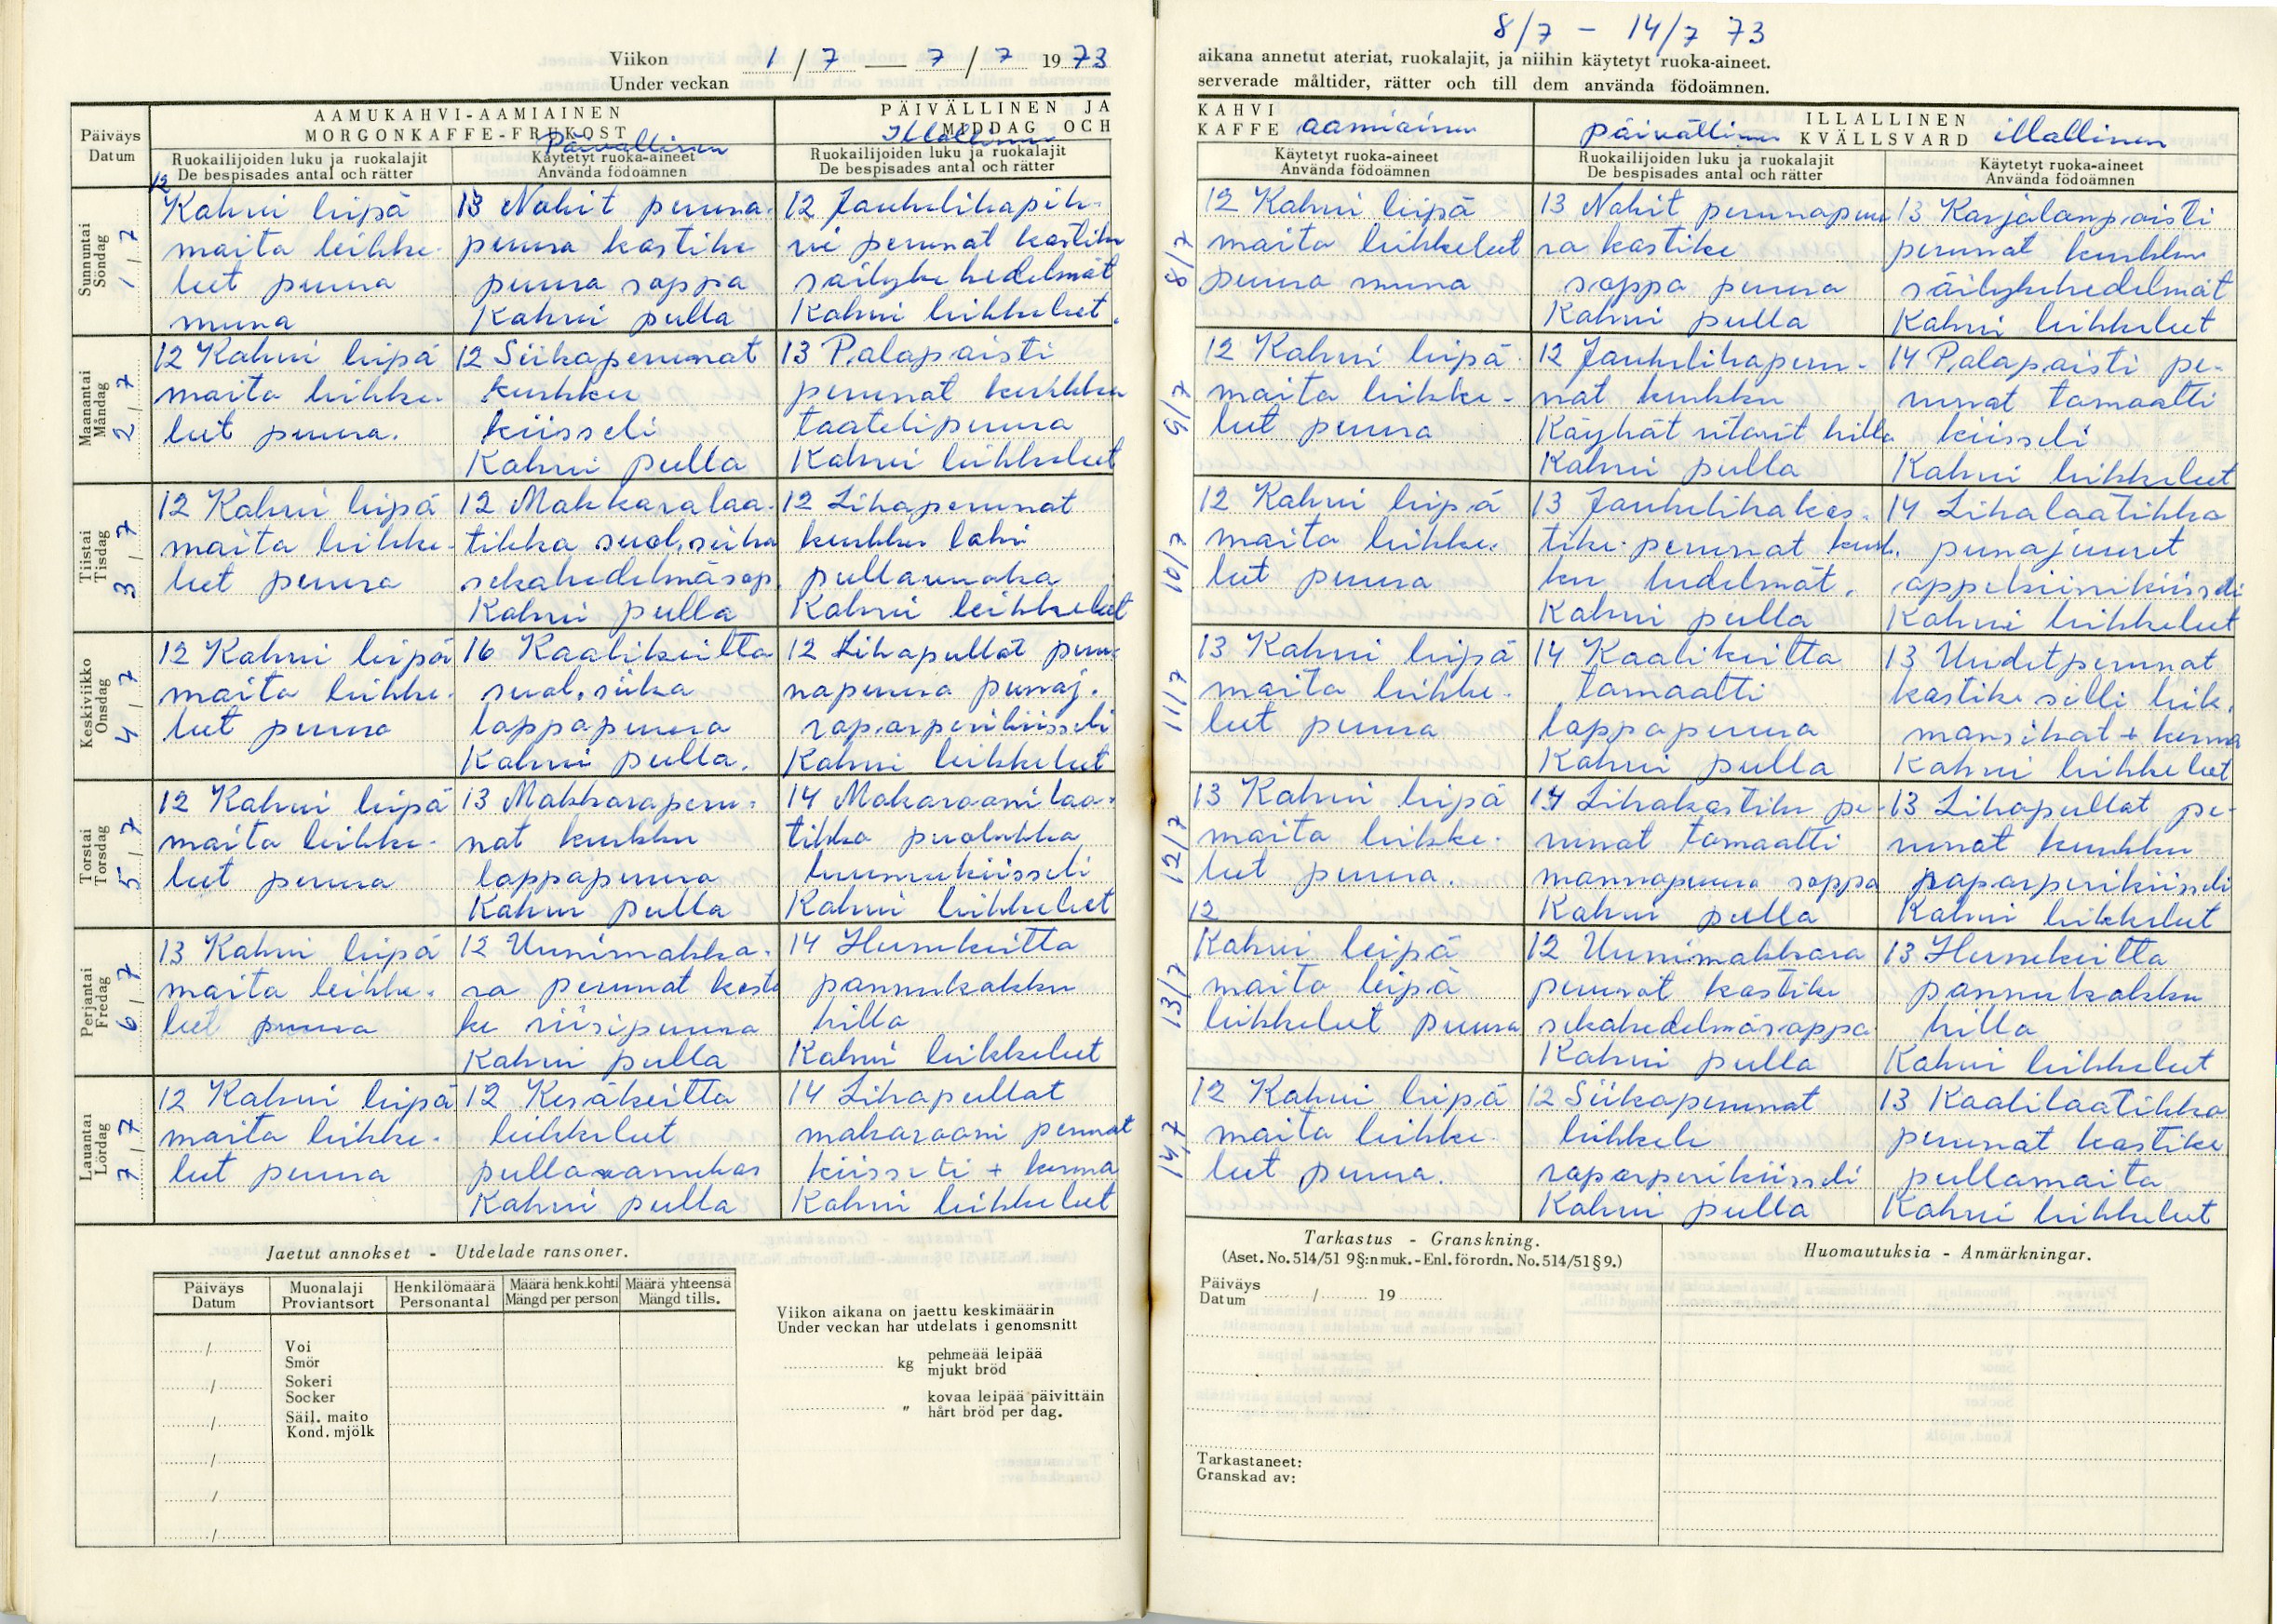 Viikon
Under veckan
1/7 — 7/7 1973
AAMUKAHVI-AAMIAINEN
MORGONKAFFE-FRUKOST
Päivällinen
PÄIVÄLLINEN JA
MIDDAG OCH
Illallinen
Päiväys
Datum
Ruokailijoiden luku ja ruokalajit
De bespisades antal och rätter
Käytetyt ruoka-aineet
Använda födoämnen
Ruokailijoiden luku ja ruokalajit
De bespisades antal och rätter
Sunnuntai
Söndag
1/7
12
Kahvi leipä
maito leikke-
leet puuro
muna
13 Nakit peruna-
puuro kastike
puuro soppa
Kahvi pulla
12 Jauhelihapih-
vi perunat kastike
säilyke hedelmät
Kahvi leikkeleet.
Maanantai
Måndag
2/7
12 Kahvi leipä
maito leikke-
leet puuro.
12 Siikaperunat
kurkku
kiisseli
Kahvi pulla
13 Palapaisti
perunat kurkku
taatelipuuro
Kahvi leikkeleet
Tiistai
Tisdag
3/7
12 Kahvi leipä
maito leikke-
leet puuro
12 Makkaralaa-
tikko suol. siika
sekahedelmäsop.
Kahvi pulla
12 Lihaperunat
kurkku lohi
pullavanukas
Kahvi leikkeleet
Keskiviikko
Onsdag
4/7
12 Kahvi leipä
maito leikke-
leet puuro
16 Kaalikeitto
suol. siika
lappapuuro
Kahvi pulla.
12 Lihapullat peru-
napuuro punaj.
raparperikiisseli
Kahvi leikkeleet
Torstai
Torsdag
5/7
12 Kahvi leipä
maito leikke-
leet puuro
13 Makkaraperu-
nat kurkku
lappapuuro
Kahvi pulla
14 Makaroonilaa-
tikko puolukka
luumukiisseli
Kahvi leikkeleet
Perjantai
Fredag
6/7
13 Kahvi leipä
maito leikke-
leet puuro
12 Uunimakka-
ra perunat kasti
ke riisipuuro
Kahvi pulla
14 Hernekeitto
pannukakku
hillo
Kahvi leikkeleet
Lauantai
Lördag
7/7
12 Kahvi leipä
maito leikke-
leet puuro
12 Kesäkeitto
leikkeleet
pullavanukas
Kahvi pulla
14 Lihapullat
makarooni perunat
kiisseli + kerma
Kahvi leikkeleet
Jaetut annokset - Utdelade ransoner.
Päiväys
Datum
Muonalaji
Proviantsort
Henkilömäärä
Personantal
Määrä henk.kohti
Mängd per person
Määrä yhteensä
Mängd tills.
Voi
Smör
Sokeri
Socker
Säil. maito
Kond. mjölk
Viikon aikana on jaettu keskimäärin
Under veckan har utdelats i genomsnitt
kg pehmeää leipää
mjukt bröd
" kovaa leipää päivittäin
hårt bröd per dag.
8/7 - 14/7 73
aikana annetut ateriat, ruokalajit, ja niihin käytetyt ruoka-aineet.
serverade måltider, rätter och till dem använda födoämnen.
KAHVI
KAFFE aamiainen
ILLALLINEN
päivällinen KVÄLLSVARD illallinen
Käytetyt ruoka-aineet
Använda födoämnen
Ruokailijoiden luku ja ruokalajit
De bespisades antal och rätter
Käytetyt ruoka-aineet
Använda födoämnen
8/7
12 Kahvi leipä
maito leikkeleet
puuro muna
13 Nakit perunapuu
ro kastike
soppa puuro
Kahvi pulla
13 Karjalanpaisti
perunat kurkku
säilykehedelmät
Kahvi leikkeleet
9/7
12 Kahvi leipä
maito leikke-
leet puuro
12 Jauhelihaperu-
nat kurkku
Käyhät ritarit hillo
Kahvi pulla
14 Palapaisti pe-
runat tomaatti
kiisseli
Kahvi leikkeleet
10/7
12 Kahvi leipä
maito leikke-
leet puuro
13 Jauhelihakas-
tike perunat kurk-
ku hedelmät.
Kahvi pulla
14 Lihalaatikko
punajuuret
appelsiinikiisseli
Kahvi leikkeleet
11/7
13 Kahvi leipä
maito leikke-
leet puuro
14 Kaalikeitto
tomaatti
lappapuuro
Kahvi pulla
13 Uudet perunat
kastike silli leik.
mansikat + kerma
Kahvi leikkeleet
12/7
13 Kahvi leipä
maito leikke-
leet puuro.
14 Lihakastike pe-
runat tomaatti
mannapuuro soppa
Kahvi pulla
13 Lihapullat pe-
runat kurkku
raparperikiisseli
Kahvi leikkeleet
13/7
12
Kahvi leipä
maito leipä
leikkeleet puuro
12 Uunimakkara
perunat kastike
sekahedelmäsoppa
Kahvi pulla
13 Hernekeitto
pannukakku
hillo
Kahvi leikkeleet
14/7
12 Kahvi leipä
maito leikke-
leet puuro.
12 Siikaperunat
leikkele
raparperikiisseli
Kahvi pulla
13 Kaalilaatikko
perunat kastike
pullamaito
Kahvi leikkeleet
Tarkastus - Granskning.
(Aset. No. 514/51 9§:n muk. - Enl. förordn. No. 514/51 § 9.)
Päiväys
Datum / 19
Huomautuksia - Anmärkningar.
Tarkastaneet:
Granskad av: